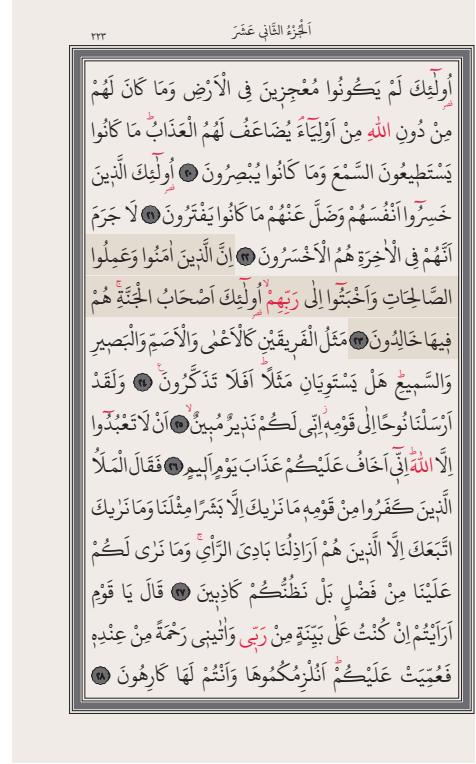 اَلْجُزْءُ الثَّانِي عَشَرَ
٢٢٣
اُولٰٓئِكَ لَمْ يَكُونُوا مُعْجِزِينَ فِي الْاَرْضِ وَمَا كَانَ لَهُمْ
مِنْ دُونِ اللّٰهِ مِنْ اَوْلِيَٓاءَۘ يُضَاعَفُ لَهُمُ الْعَذَابُۜ مَا كَانُوا
يَسْتَطِيعُونَ السَّمْعَ وَمَا كَانُوا يُبْصِرُونَ ﴿٢٠﴾ اُولٰٓئِكَ الَّذِينَ
خَسِرُٓوا اَنْفُسَهُمْ وَضَلَّ عَنْهُمْ مَا كَانُوا يَفْتَرُونَ ﴿٢١﴾ لَا جَرَمَ
اَنَّهُمْ فِي الْاٰخِرَةِ هُمُ الْاَخْسَرُونَ ﴿٢٢﴾ اِنَّ الَّذِينَ اٰمَنُوا وَعَمِلُوا
الصَّالِحَاتِ وَاَخْبَتُٓوا اِلٰى رَبِّهِمْۙ اُولٰٓئِكَ اَصْحَابُ الْجَنَّةِۚ هُمْ
فِيهَا خَالِدُونَ ﴿٢٣﴾ مَثَلُ الْفَرِيقَيْنِ كَالْاَعْمٰى وَالْاَصَمِّ وَالْبَصِيرِ
وَالسَّمِيعِۜ هَلْ يَسْتَوِيَانِ مَثَلًاۜ اَفَلَا تَذَكَّرُونَ۟ ﴿٢٤﴾ وَلَقَدْ
اَرْسَلْنَا نُوحًا اِلٰى قَوْمِهِۘ اِنِّي لَكُمْ نَذِيرٌ مُبِينٌۙ ﴿٢٥﴾ اَنْ لَا تَعْبُدُٓوا
اِلَّا اللّٰهَۜ اِنِّٓي اَخَافُ عَلَيْكُمْ عَذَابَ يَوْمٍ اَلِيمٍ ﴿٢٦﴾ فَقَالَ الْمَلَاُ
الَّذِينَ كَفَرُوا مِنْ قَوْمِهِ مَا نَرٰيكَ اِلَّا بَشَرًا مِثْلَنَا وَمَا نَرٰيكَ
اتَّبَعَكَ اِلَّا الَّذِينَ هُمْ اَرَاذِلُنَا بَادِيَ الرَّأْيِۚ وَمَا نَرٰى لَكُمْ
عَلَيْنَا مِنْ فَضْلٍ بَلْ نَظُنُّكُمْ كَاذِبِينَ ﴿٢٧﴾ قَالَ يَا قَوْمِ
اَرَاَيْتُمْ اِنْ كُنْتُ عَلٰى بَيِّنَةٍ مِنْ رَبِّي وَاٰتٰينِي رَحْمَةً مِنْ عِنْدِهِ
فَعُمِّيَتْ عَلَيْكُمْۜ اَنُلْزِمُكُمُوهَا وَاَنْتُمْ لَهَا كَارِهُونَ ﴿٢٨﴾